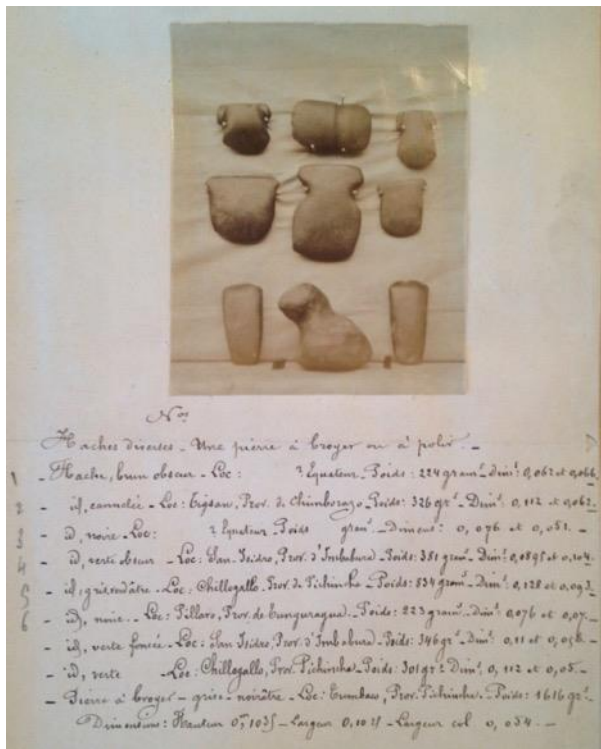 Nos
Haches diverses - Une pierre à broyer ou à polir -
1 - Hache, brun obscur - Loc: ? Equateur - Poids: 224 gram.s - Dim.s: 0,062 et 0,066.
2 - id, cannelée - Loc: Tigsan, Prov. de Chimborazo - Poids: 326 gr.s - Dim.s: 0,112 et 0,062.
3 - id, noire - Loc: ? Equateur - Poids gram.s - Dimens: 0,076 et 0,051. -
4 - id, verte obscur - Loc: San Isidro, Prov. d'Imbabura - Poids: 381 gram.s - Dim.s: 0,0895 et 0,104.
5 - id, grisendâtre - Loc: Chillogallo, Prov. de Pichincha - Poids: 834 gram.s - Dim.s: 0,128 et 0,093.
6 - id, noire - Loc: Pillaro, Prov. de Tunguragua - Poids: 223 gram.s - Dim.s: 0,076 et 0,07. -
- id, verte foncée - Loc: San Isidro, Prov. d'Imbabura - Poids: 346 gr.s - Dim.s: 0,11 et 0,058. -
- id, verte - Loc: Chillogallo, Prov. Pichincha - Poids: 301 gr.s - Dim.s: 0,112 et 0,05. -
- Pierre à broyer - grise-noirâtre - Loc: Tumbaco, Prov. Pichincha - Poids: 1616 gr.s -
Dimensions: Hauteur 0,m 105 - Largeur 0,101 - Largeur col 0,054. -